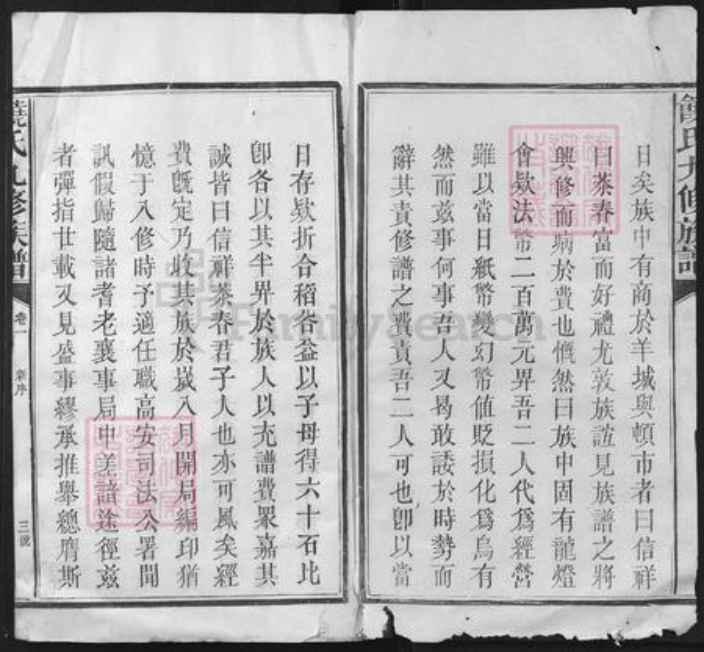 饒氏九修族譜
日矣族中有商於羊城與頓市者曰信祥
曰茶春富而好禮尤敦族誼見族譜之將
興修而病於費也慨然曰族中固有龍燈
會欵法幣二百萬元畀吾二人代爲經營
雖以當日紙幣變幻幣值貶損化爲烏有
然而茲事何事吾人又曷敢諉於時勢而
辭其責修譜之費責吾二人可也卽以當
日存欵折合稻谷益以子母得六十石比
卽各以其半畀於族人以充譜費衆嘉其
誠皆曰信祥茶春君子人也亦可風矣經
費旣定乃收其族於嵗八月開局編印猶
憶于八修時予適任職高安司法公署聞
訊假歸隨諸耆老襄事局中差諳途徑茲
者彈指廿載又見盛事繆承推舉總膺斯
饒氏九修族譜
卷一
新序
三號
FamilySearch